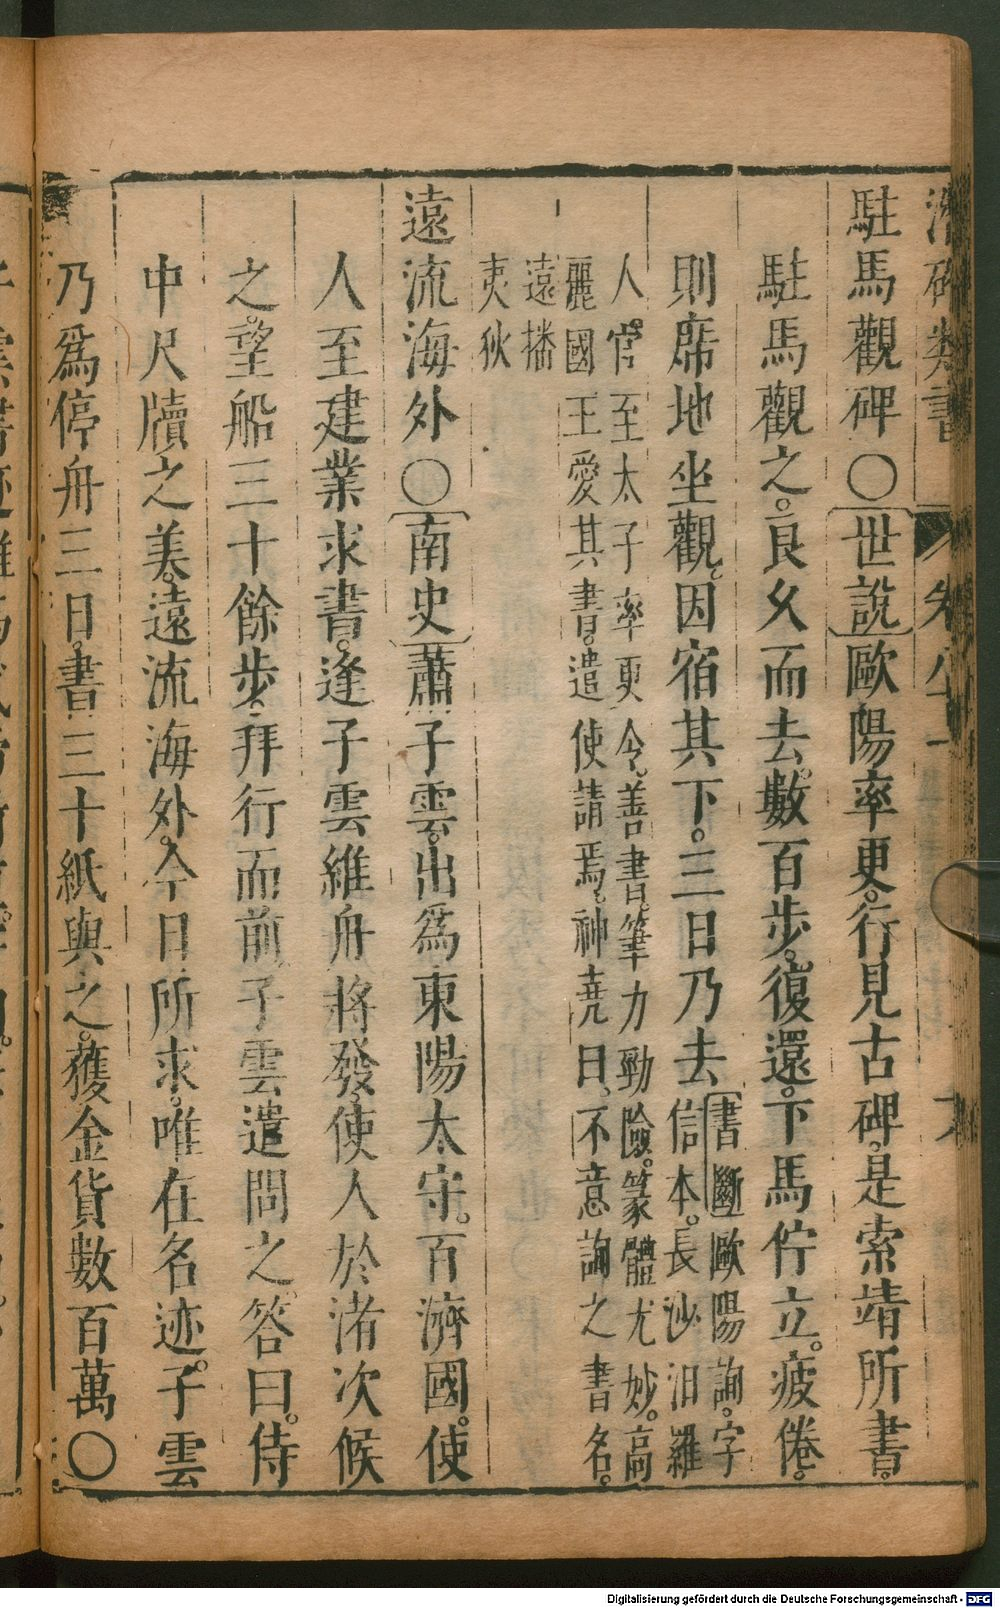 駐馬觀碑○世說歐陽率更行見古碑是索靖所書
駐馬觀之良久而去數百步復還下馬佇立疲倦
則席地坐觀因宿其下三日乃去
書斷歐陽詢字
信本長沙汨羅
人官至太子率更令善書筆力勁險篆體尤妙高
麗國王愛其書遣使請焉神堯曰不意詢之書名
遠播
夷狄
遠流海外○南史蕭子雲出為東陽太守百濟國使
人至建業求書逢子雲維舟將發使人於渚次候
之望船三十餘步拜行而前子雲遣問之答曰侍
中尺牘之美遠流海外今日所求唯在名迹子雲
乃爲停舟三日書三十紙與之獲金貨數百萬○
Digitalisierung gefördert durch die Deutsche Forschungsgemeinschaft - DFG